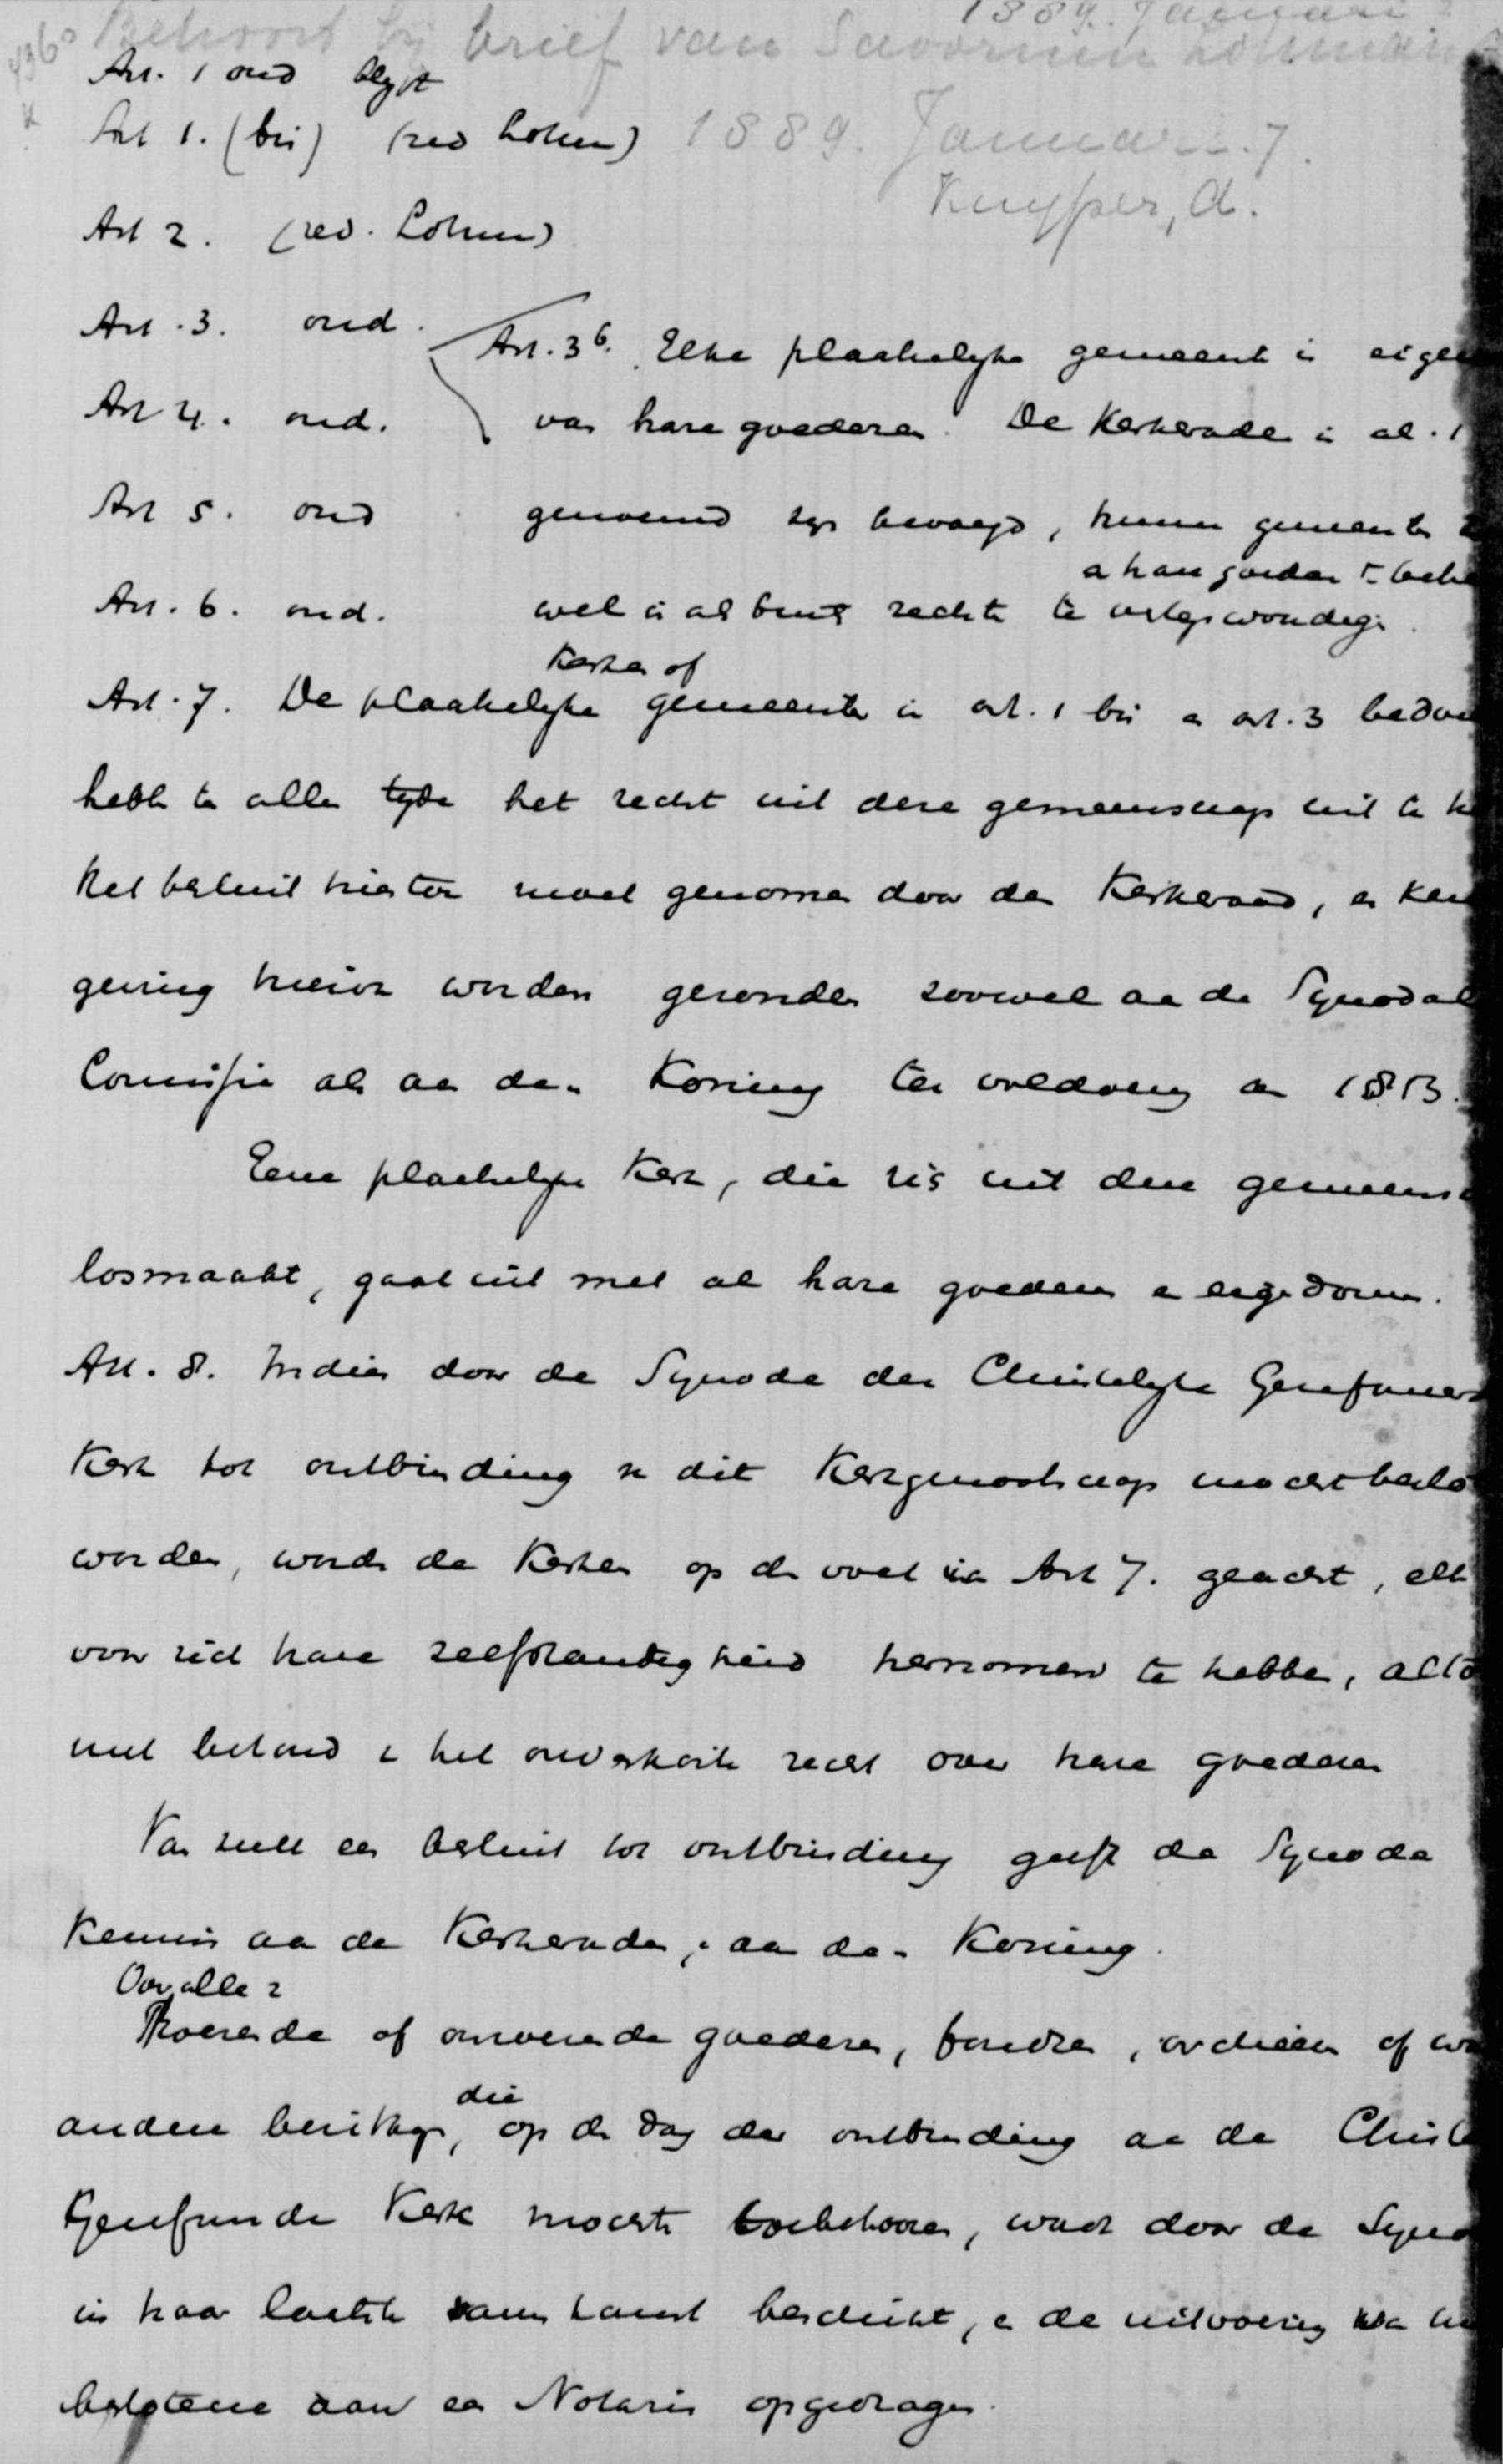 1889. Januari
Behoort bij brief van Savornin Lohman
Art. 1 oud blijft
Art 1. (bis) (red Lohm) 1889. Januari. 7.
Kuyper, A.
Art 2. (red. Lohm)
Art. 3. oud.
Art. 3b. Elke plaatselijke gemeente is eigen
Art 4. oud.
van hare goederen. De Kerkeraden in al. 1
Art 5. oud
genoemd zijn bevoegd, hunne gemeente
en hare goederen te behe
Art. 6. oud.
wel in als buiten rechte te vertegenwoordigen.
Kerken of
Art. 7. De plaatselijke gemeente in art. 1 bis en art. 3 bedoe
hebben te allen tijde het recht uit deze gemeenschap uit te
Het besluit hiertoe moet genomen door den Kerkeraad, en ken
geving hiervan worden gezonden zoowel aan de Synodal
Commissie als aan den Koning ter voldoening aan 1853.
Eene plaatselijke Kerk, die zich uit deze gemeens
losmaakt, gaat uit met al hare goederen en eigendomm.
Art. 8. Indien door de Synode der Christelijke Gereformeerd
Kerk tot ontbinding van dit Kerkgenootschap mocht beslo
worden, worden de Kerken op den voet van Art 7. geacht, elk
voor zich hare zelfstandigheid hernomen te hebben, alto
met behoud van het onverkorte recht over hare goederen
Van zulk een besluit tot ontbinding geeft de Synode
Kennis aan de Kerkeraden, en aan den Koning.
Over alle
Roerende of onroerende goederen, fondsen, archieven of
andere bezittingen, die op den dag der ontbinding aan de Christe
Gereformeerde Kerk mochten toebehooren, wordt door de Syno
in haar laatste samenkomst beschikt, en de uitvoering van
beslotene aan een Notaris opgedragen.